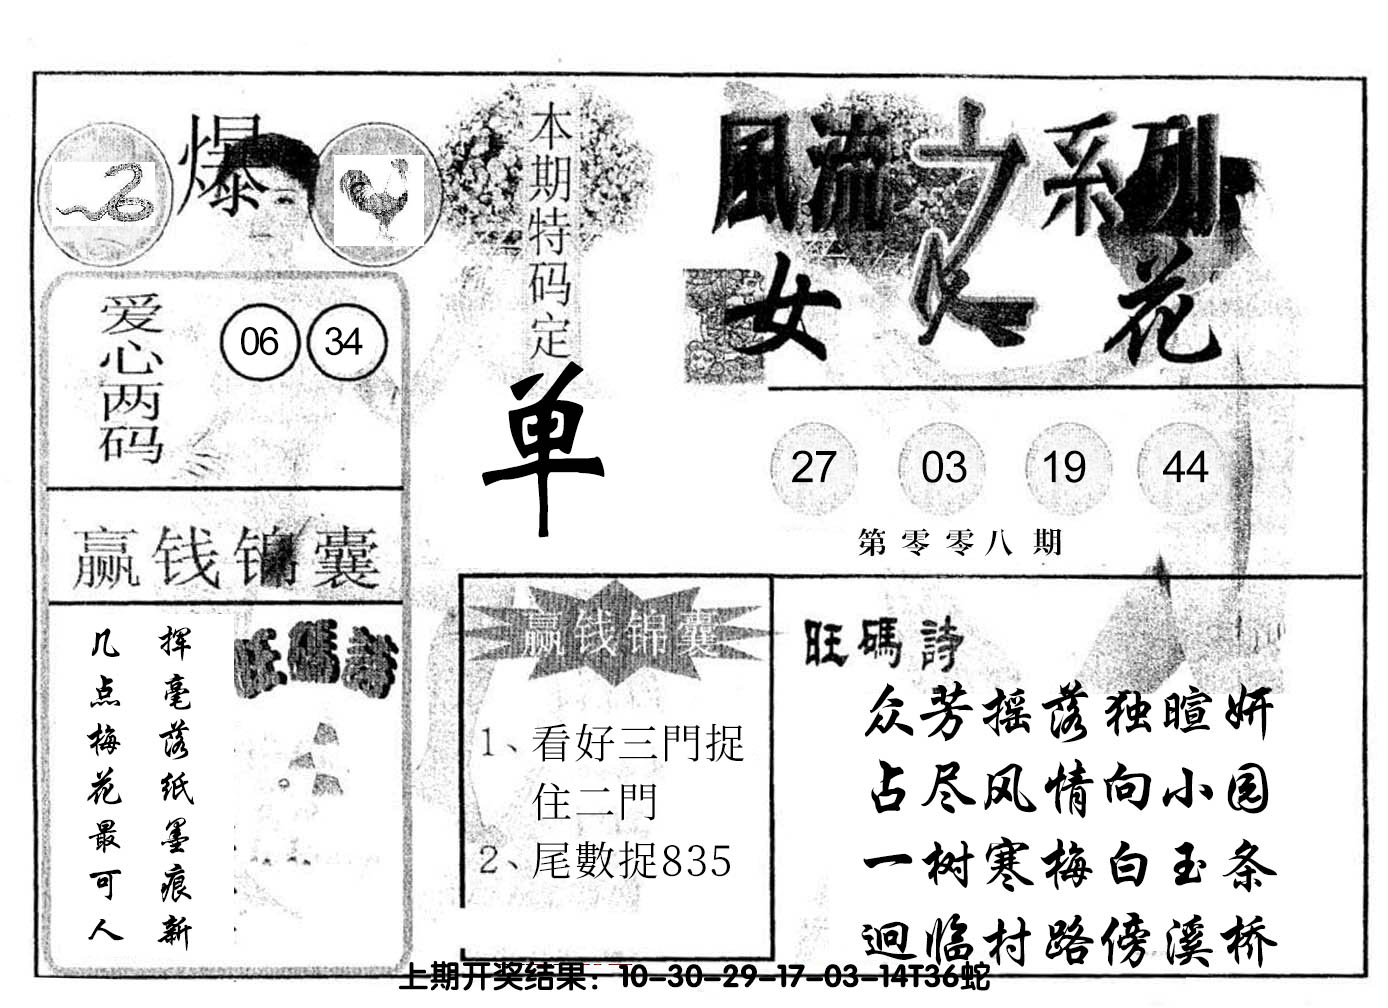 爆
本期特码定
单
風流之系列
女人花
爱心两码
06 34
27 03 19 44
第零零八期
赢钱锦囊
挥毫落纸墨痕新
几点梅花最可人
旺碼詩
赢钱锦囊
1、看好三門捉
住二門
2、尾數捉835
旺碼詩
众芳摇落独暄妍
占尽风情向小园
一树寒梅白玉条
迥临村路傍溪桥
上期开奖结果：10-30-29-17-03-14T36蛇